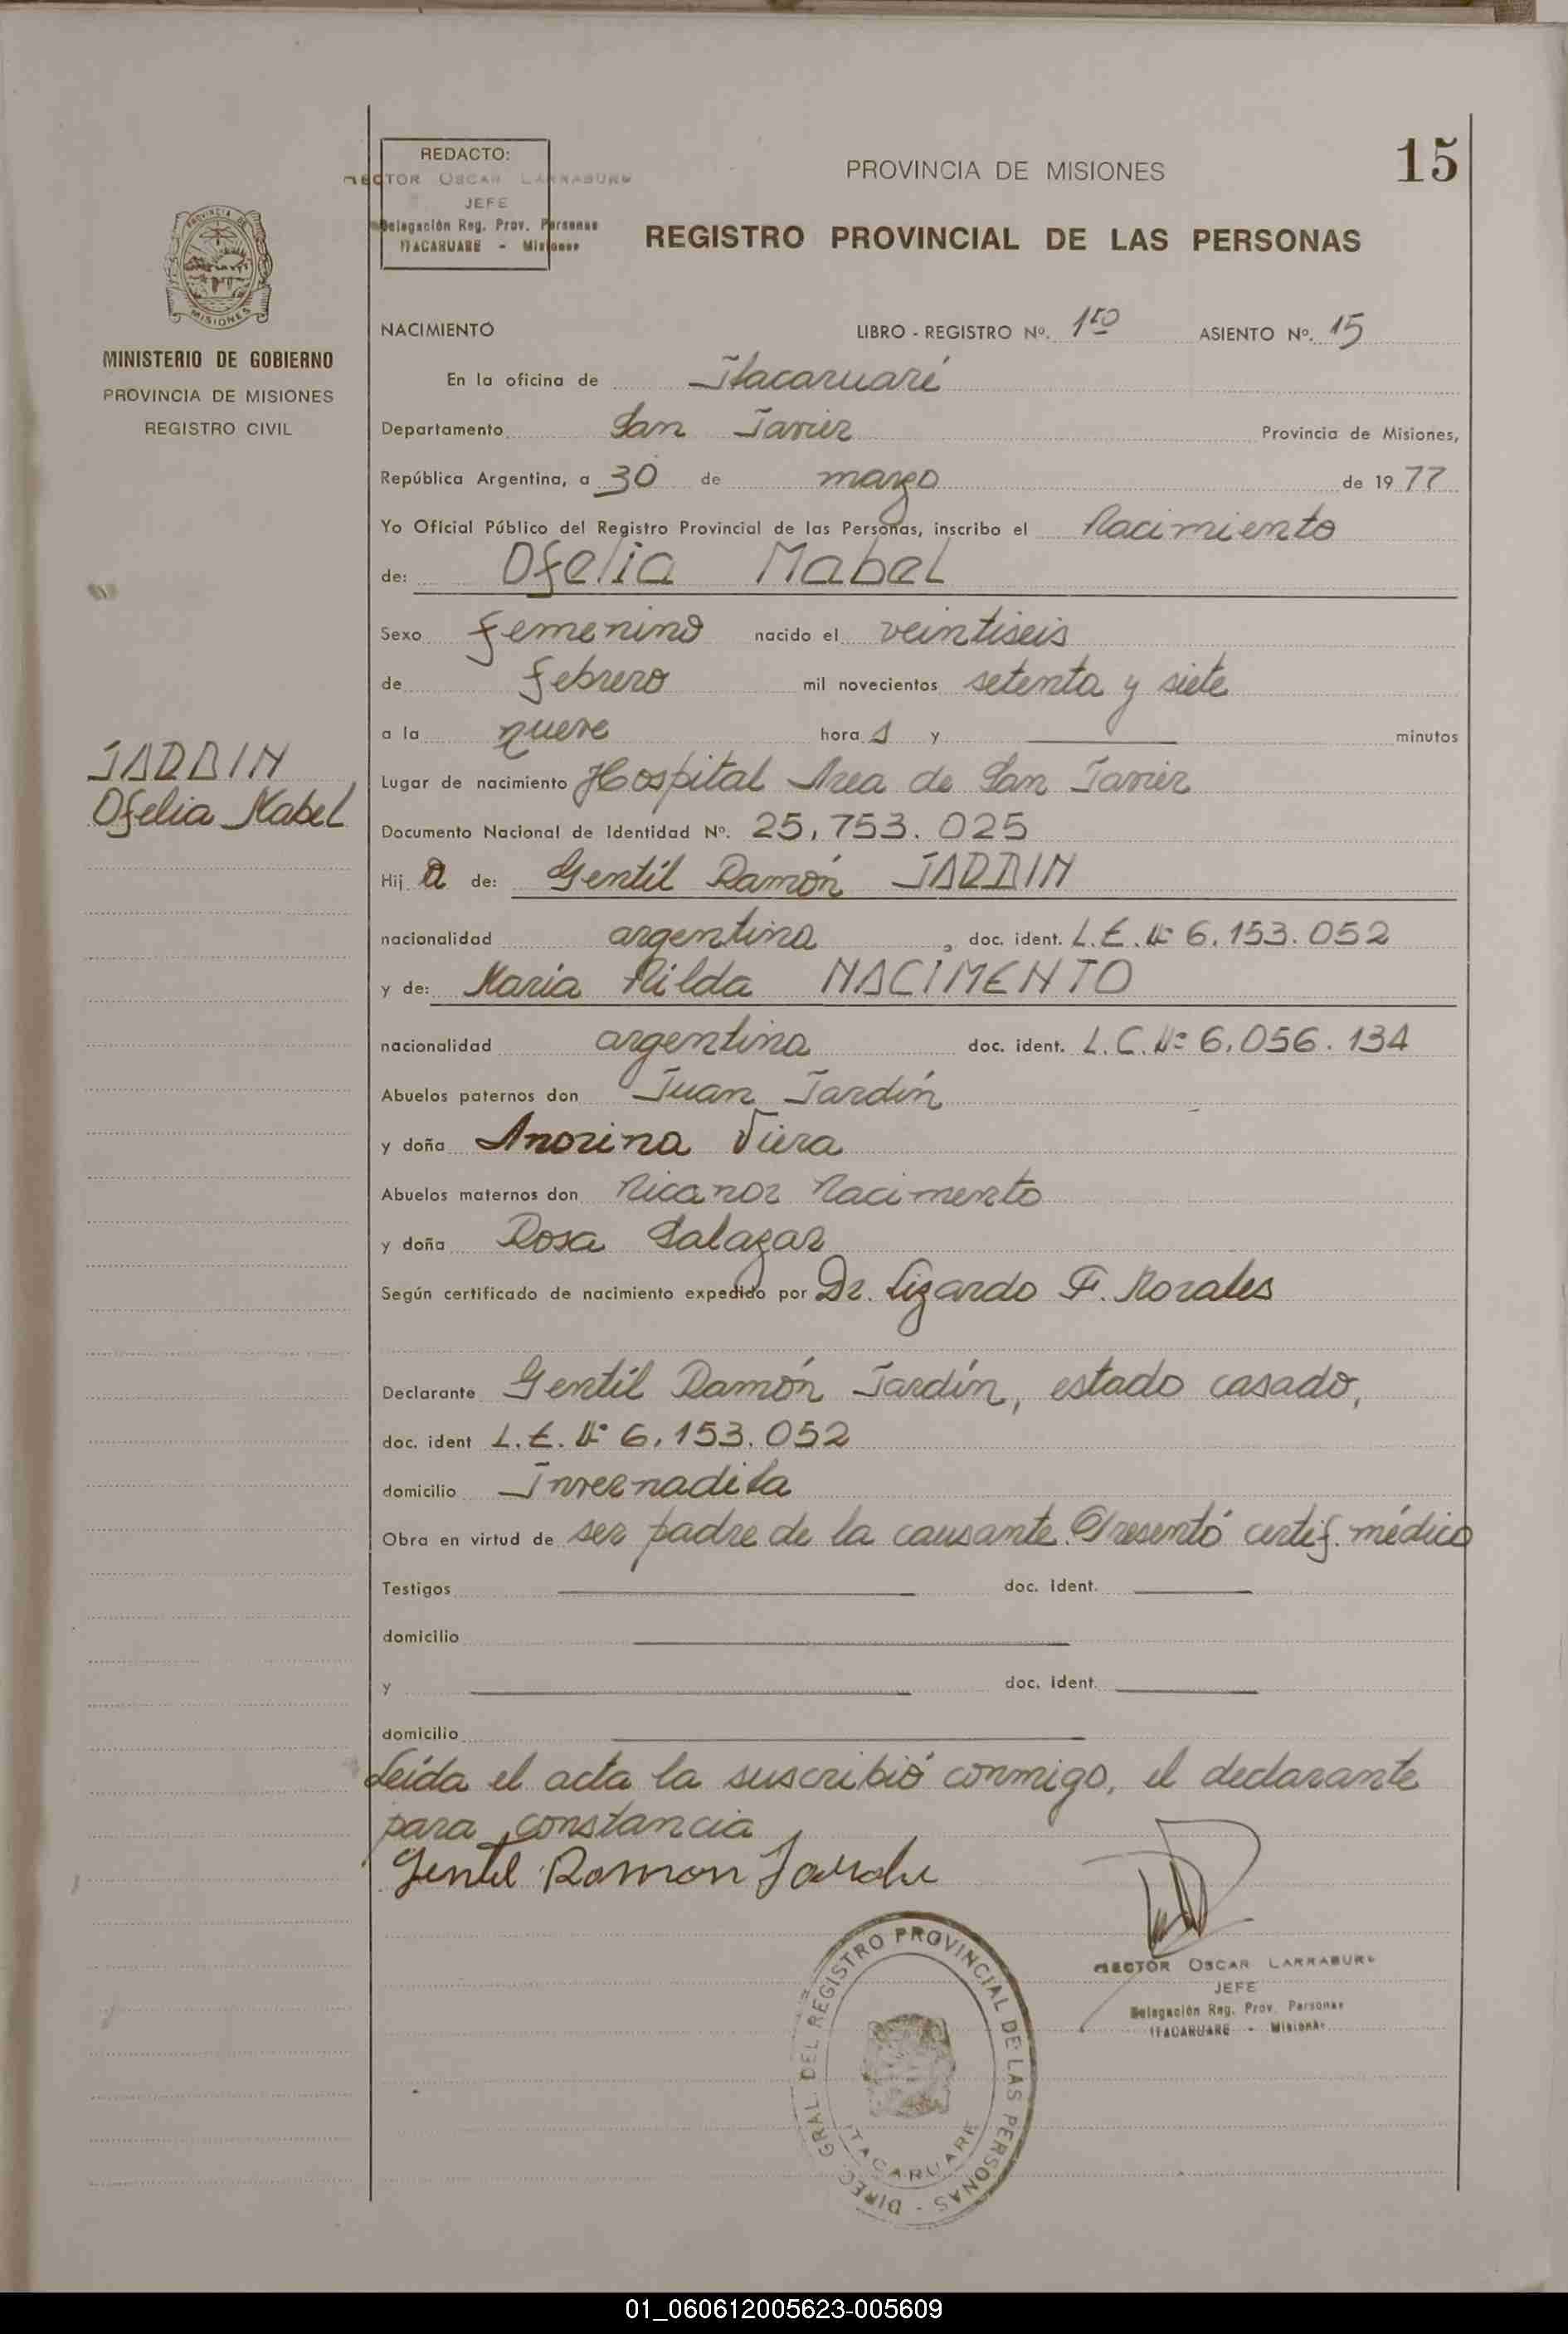 REDACTO:
HECTOR OSCAR LARRABURU
JEFE
Delegación Reg. Prov. Personas
ITACARUARE - Misiones
15
PROVINCIA DE MISIONES
REGISTRO PROVINCIAL DE LAS PERSONAS
PROVINCIA DE
MISIONES
MINISTERIO DE GOBIERNO
PROVINCIA DE MISIONES
REGISTRO CIVIL
JARDIN
Ofelia Mabel
NACIMIENTO LIBRO - REGISTRO Nº. 1ro ASIENTO Nº. 15
En la oficina de Itacaruaré
Departamento San Javier Provincia de Misiones,
República Argentina, a 30 de marzo de 19 77
Yo Oficial Público del Registro Provincial de las Personas, inscribo el Nacimiento
de: Ofelia Mabel
Sexo femenino nacido el veintiseis
de febrero mil novecientos setenta y siete
a la nueve hora s y minutos
Lugar de nacimiento Hospital Area de San Javier
Documento Nacional de Identidad Nº. 25.753.025
Hij a de: Gentil Ramón JARDIN
nacionalidad argentina, doc. ident. L.E. Nº 6.153.052
y de: María Hilda NACIMENTO
nacionalidad argentina doc. ident. L.C. Nº 6.056.134
Abuelos paternos don Juan Jardín
y doña Anorina Viera
Abuelos maternos don Nicanor Nacimento
y doña Rosa Salazar
Según certificado de nacimiento expedido por Dr. Lizardo F. Morales
Declarante Gentil Ramón Jardín, estado casado,
doc. ident L.E. Nº 6.153.052
domicilio Invernadita
Obra en virtud de ser padre de la causante. Presentó certif. médico
Testigos doc. ident.
domicilio
y doc. ident.
domicilio
Leída el acta la suscribió conmigo, el declarante
para constancia
Gentil Ramon Jardin
HECTOR OSCAR LARRABURU
JEFE
Delegación Reg. Prov. Personas
ITACARUARE - Misiones
DIREC. GRAL. DEL REGISTRO PROVINCIAL DE LAS PERSONAS -
ITACARUARE
01_060612005623-005609